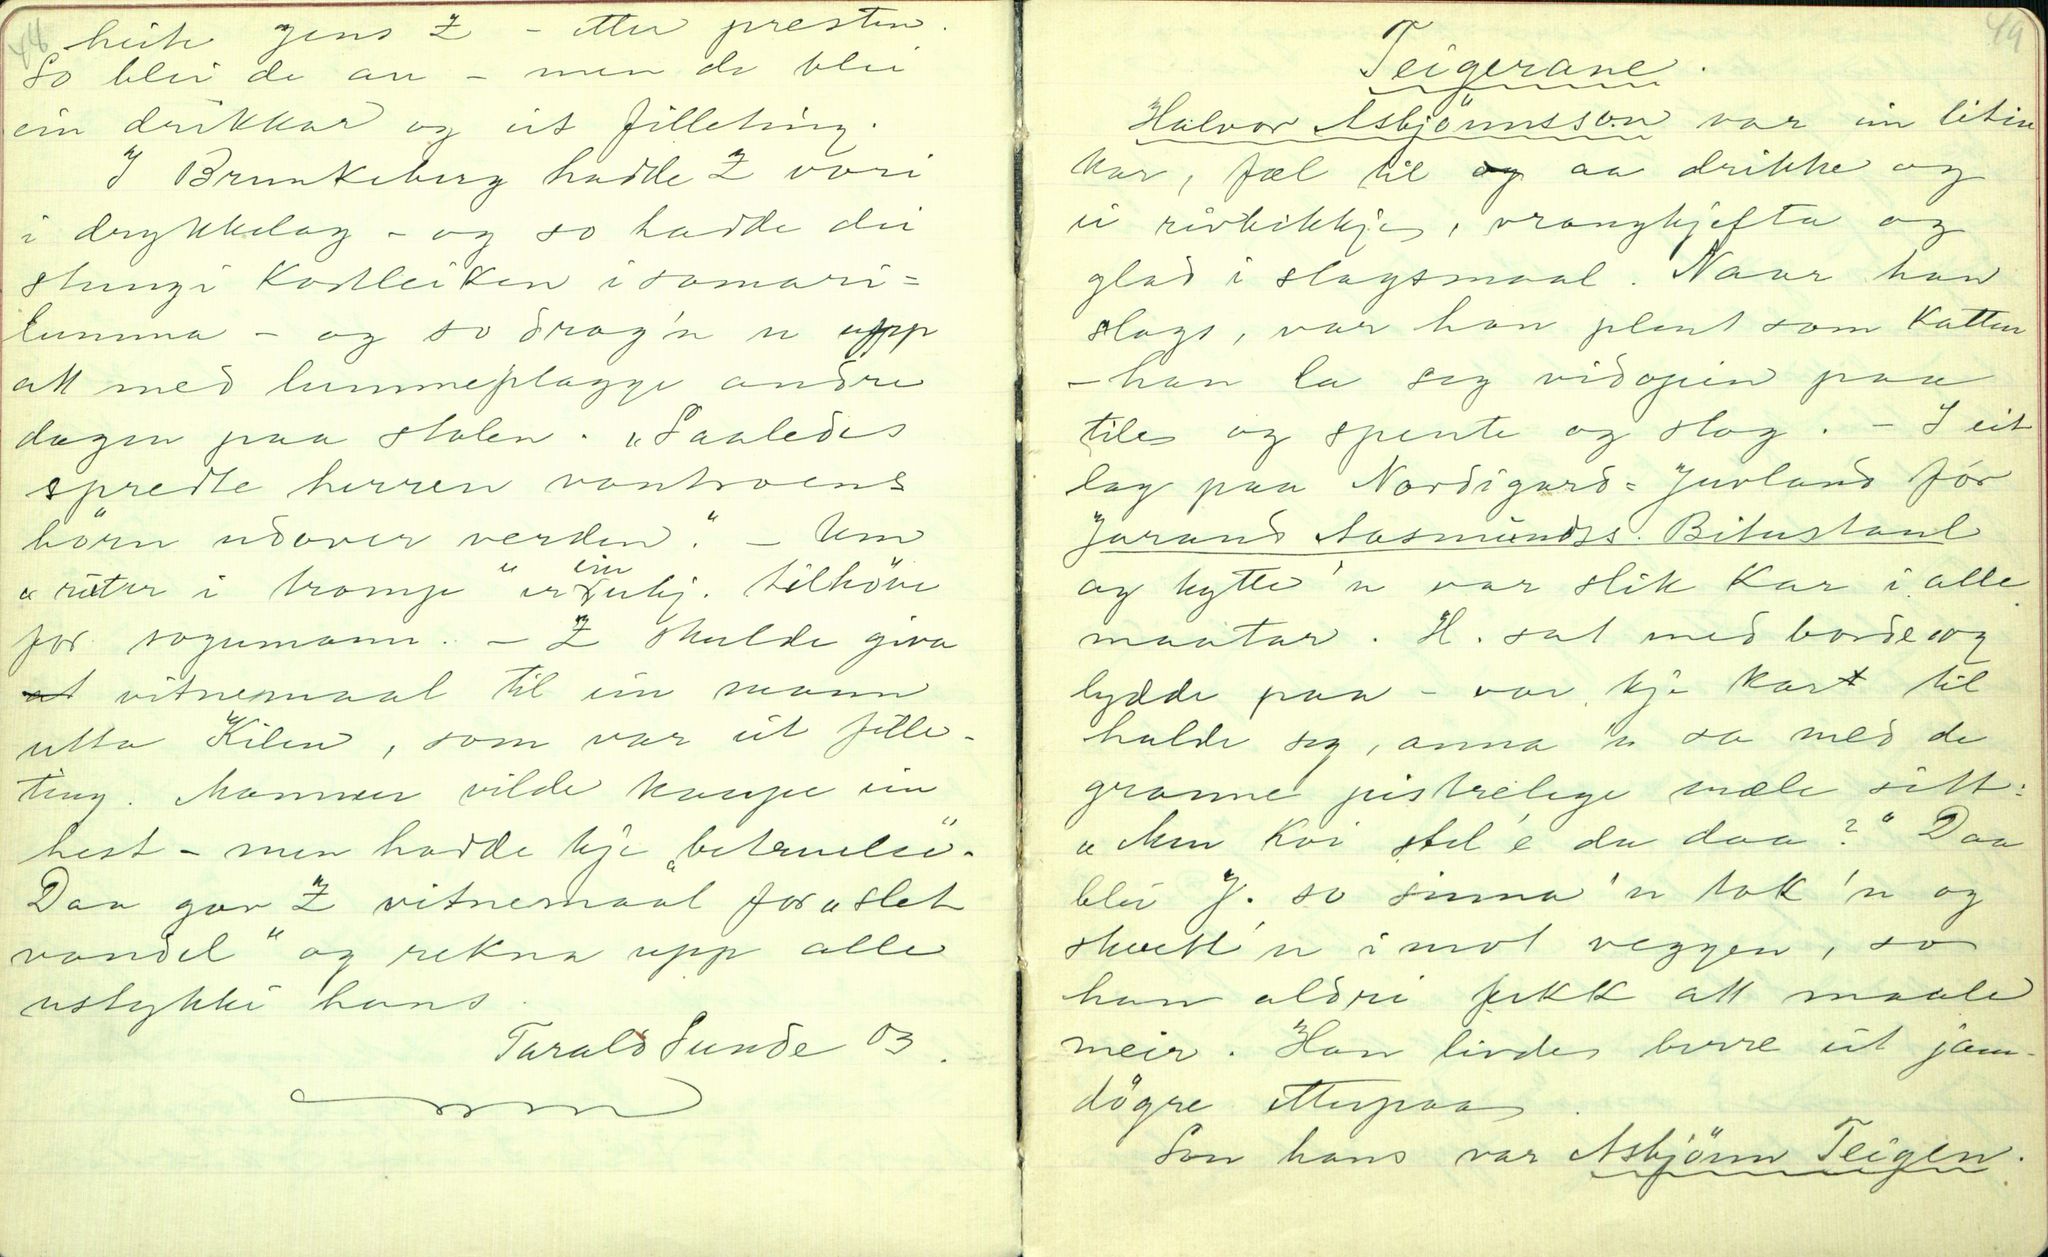 48
heite Jens Z - etter presten.
So blei de au - men de blei
ein drikkar og eit filleting.
I Brunkeberg hadde Z vori
i drykkelag - og so hadde dei
stungi Kortleiken i somari=
lumma - og so drog'n n upp
att med lummeplaggje andre
dagen paa stolen. „Saaledes
spredte herren vantroens
börn udover verden.“ - Um
„rotur i trompe“ er ein uhj. tilhöve
for sogumann. - Z skulde giva
vitnemaal til ein mann
utta Kilen, som var eit fille-
ting. Mannen vilde kaupe ein
hest - men hadde kje „betruelse“.
Daa gav Z vitnemaal for „slet
vandel“ og rekna upp alle
ustykki hans.
Tarald Sunde 03.
49
Teigerane.
Halvor Asbjönnsson var ein liten
kar, fæl til og aa drikke og
ei rivbikkje, vrangkjefta og
glad i slagsmaal. Naar han
slogs, var han plent som Katten
- han la seg vidopin paa
tile og spente og slog. - I eit
lag paa Nordigard=Juvland fór
Jorand Aasmundss. Bitustaul
og kytte 'n var slik Kar i alle
maatar. H. sat med borde og
lydde paa - var kje kar til
halde seg, anna 'n sa med de
granne pistrelege mæle sitt:
„Men Koi stel 'e du daa?“ Daa
blei J. so sinna 'n tok 'n og
skvett 'n i mot veggen, so
han aldri fekk att maale
meir. Han livde berre eit jam-
dögre etterpaa.
Son hans var Asbjönn Teigen.